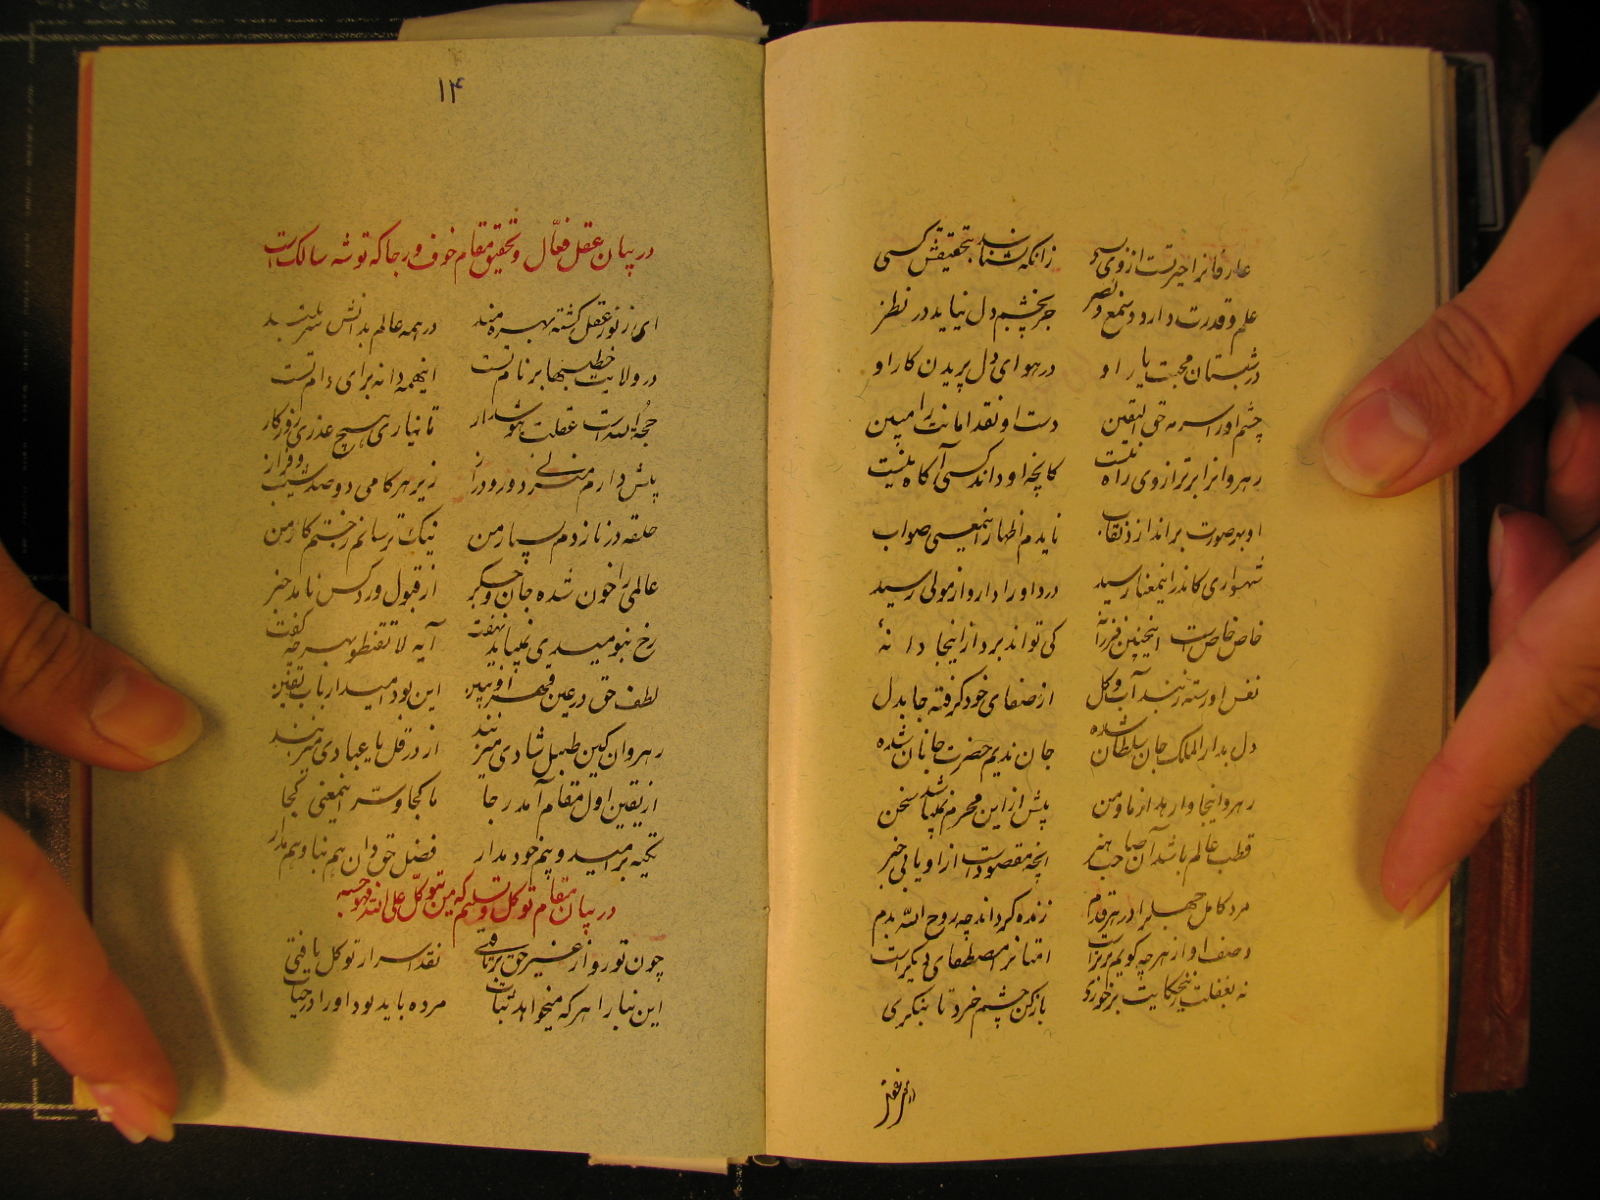 عارفانرا حیرتست از وی بسی زانکه نشناسد بتحقیقش کسی
علم و قدرت دارد و سمع و بصر جز بچشم دل نیاید در نظر
در شبستان محبت یار او در هوای دل پریدن کار او
چشم او را سرمه حق الیقین دست او نقد امانت را مبین
رهروانرا برتر از وی راه نیست کانچه او داند کسی آگاه نیست
او بهر صورت براندازد نقاب نایدم اظهار اینمعنی صواب
شهسواری کاندر اینمعنا رسید درد او را دارو از مولی رسید
خاص خاص است اینچنین فرزانه کی تواند برد از اینجا دانه
نفس او رسته ز بند آب و گل از صفای خود گرفته جا بدل
دل بدار الملک جان سلطان شده جان ندیم حضرت جانان شده
رهرو اینجا وارهد از ما و من پیش از این محرم نمیباشد سخن
قطب عالم باشد آن صاحب هنر آنچه مقصود است ازاو یابی خبر
مرد کامل جهل را در هر قدم زنده گرداند چه روح الله بدم
وصف او از هر چه گویم برتر است امتانرا مصطفای دیگر است
نه بغفلت زین حکایت برخوری باز کن چشم خرد تا بنگری
ای ز نور عقل
۱۴
در بیان عقل فعّال و تحقیق مقام خوف و رجا که توشه سالک است
ای ز نور عقل گشته بهره مند در همه عالم بدانش سر بلند
در ولایت خطبها بر نام تست اینهمه دانه برای دام تست
حجّة الله است عقلت هوشدار تا نیاری هیچ عذری روز کار
پیش دارم منزلی دور و دراز زیر هر کامی دو صد شیب و فراز
حلقه در نازدم سپار من نیک ترسانم ز ختم کار من
عالمی را خون شده جان و جگر از قبول و رد کس نامد خبر
رخ بنومیدی نمیباید نهفت آیه لا تقنطو بهر چه گفت
لطف حق در عین قهر او ببین این بود امید ارباب یقین
رهروان کین طبل شادی میزنند از در قل یا عبادی میزنند
از یقین اول مقام آمد رجا ما کجا و سرّ اینمعنی کجا
تکیه بر امید و بیم خود مدار فضل حق دان هم بنا و هم مدار
در بیان مقام توکل و تسلیم که من یتوکّل علی الله فهو حسبه
چون تو رو از غیر حق برتافتی نقد اسرار توکل یافتی
این بنا را هر که میخواهد ثبات مرده باید بود او را در حیات